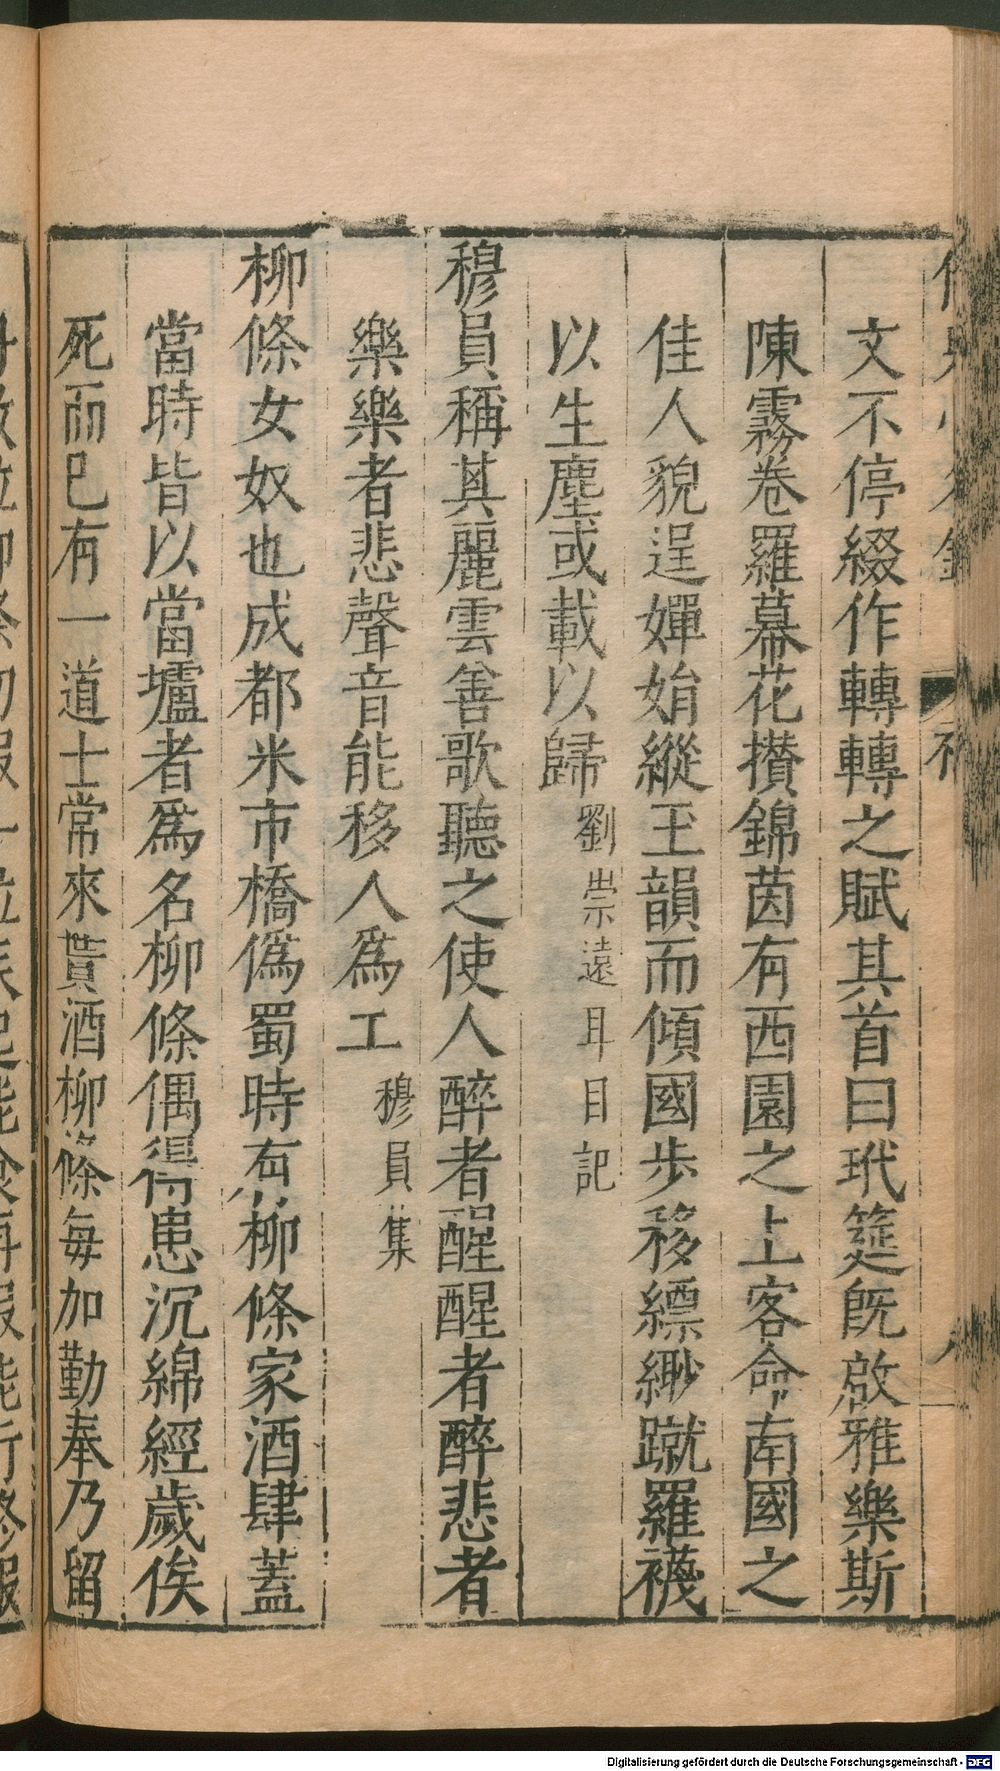 文不停綴作轉轉之賦其首曰玳筵旣啟雅樂斯
陳霧卷羅幕花攅錦茵有西園之上客命南國之
佳人貌逞嬋娟縱玉韻而傾國步移縹緲蹴羅襪
以生塵或載以歸劉崇遠耳目記
穆員稱其麗雲善歌聽之使人醉者醒醒者醉悲者
樂樂者悲聲音能移人爲工穆員集
柳條女奴也成都米市橋僞蜀時有柳條家酒肆蓋
當時皆以當壚者爲名柳條偶得患沉綿經歲俟
死而已有一道士常來貰酒柳條每加勤奉乃留
Digitalisierung gefördert durch die Deutsche Forschungsgemeinschaft - DFG